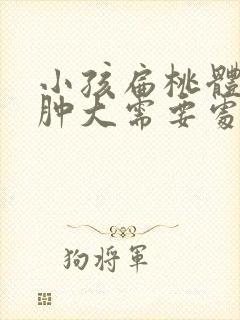 小孩扁桃體
肿大需要處
狗将軍